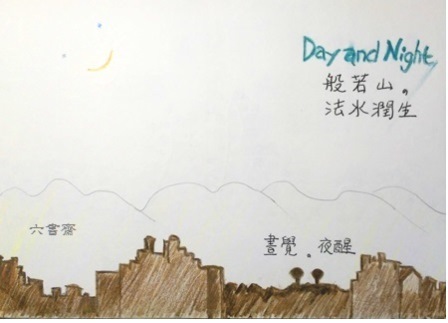 Day and Night
般若山。
法水潤生
六會齋
晝覺。夜醒